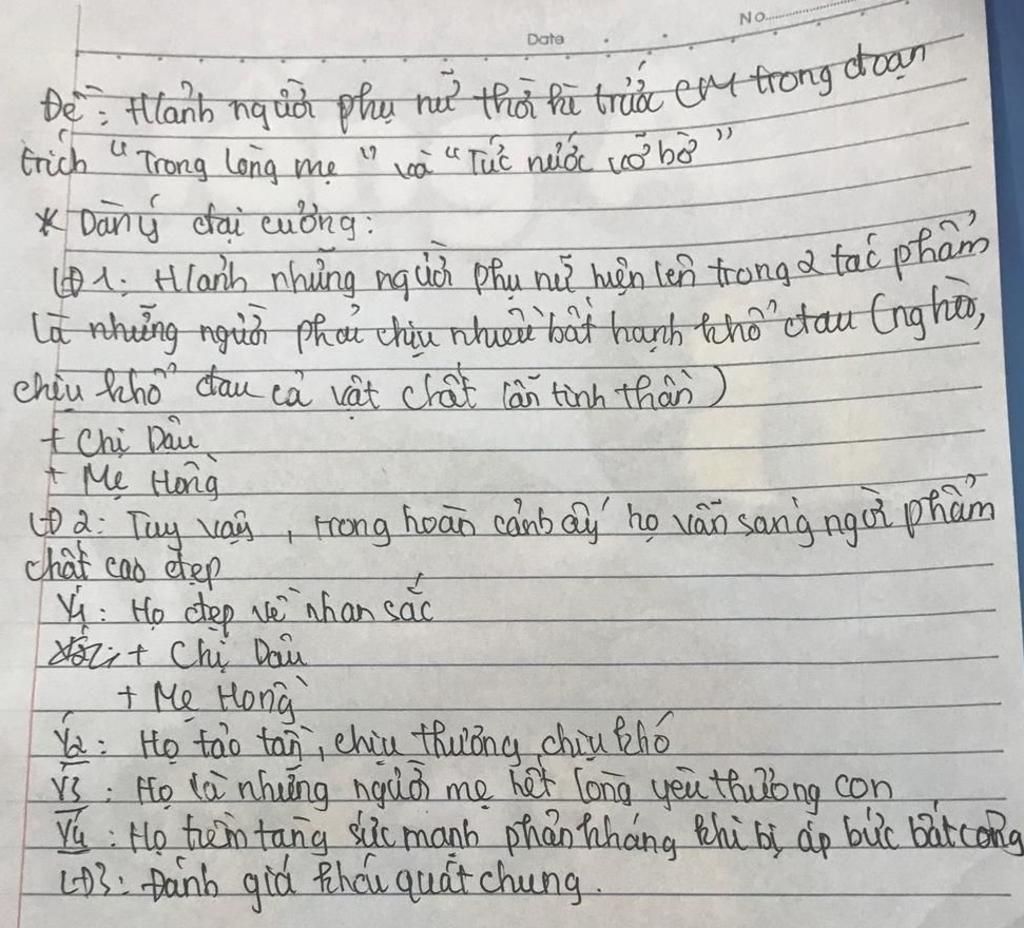 No
Date
Đề: H/ảnh người phụ nữ thời kì trước CM trong đoạn
trích "Trong lòng mẹ" và "Tức nước vỡ bờ"
* Dàn ý đại cương:
LĐ1: H/ảnh những người phụ nữ hiện lên trong 2 tác phẩm
là những người phải chịu nhiều bất hạnh khổ đau (nghèo,
chịu khổ đau cả vật chất lẫn tinh thần)
+ Chị Dậu
+ Mẹ Hồng
LĐ2: Tuy vậy, trong hoàn cảnh ấy họ vẫn sáng ngời phẩm
chất cao đẹp
Ý1: Họ đẹp về nhan sắc
+ Chị Dậu
+ Mẹ Hồng
Ý2: Họ tảo tần, chịu thương chịu khó
Ý3: Họ là những người mẹ hết lòng yêu thương con
Ý4: Họ tiềm tàng sức mạnh phản kháng khi bị áp bức bất công
LĐ3: Đánh giá khái quát chung.